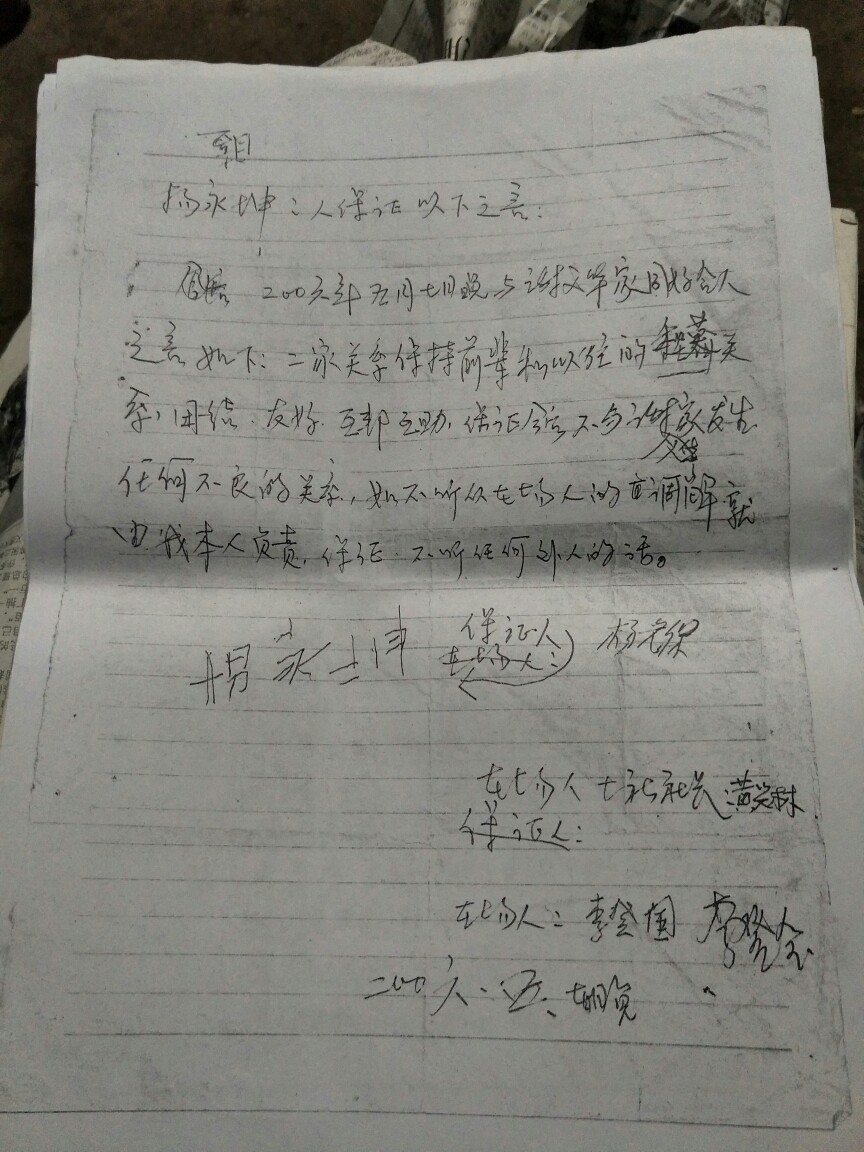 杨永坤二人保证以下之言:
200六年五月七日晚与谢文华家同好会人
之言如下:二家关系保持前辈和以往的关
系,团结.友好.互帮互助,保证今后不与谢文华家发生
任何不良的关系,如不听从在场人的调解就
由我本人负责,保证.不听任何外人的话。
杨永坤 保证人 在场人:
在场人 七社社长
保证人:
在场人:李登国
二00六.五、